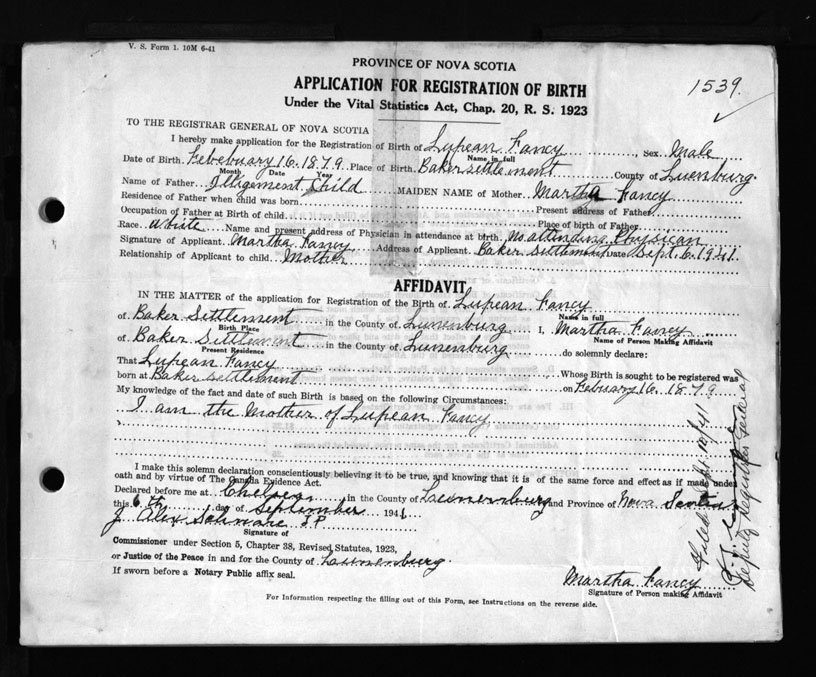 V. S. Form 1. 10M 6-41
PROVINCE OF NOVA SCOTIA
1539.
APPLICATION FOR REGISTRATION OF BIRTH
Under the Vital Statistics Act, Chap. 20, R. S. 1923
TO THE REGISTRAR GENERAL OF NOVA SCOTIA
I hereby make application for the Registration of Birth of Lupean Fancy, Sex Male
Name in full
Date of Birth Febebuary 16. 1879 Place of Birth Baker settlement County of Luenburg.
Month Date Year
Name of Father Illagement Child MAIDEN NAME of Mother Martha Fancy
Residence of Father when child was born Present address of Father
Occupation of Father at Birth of child Place of birth of Father
Race white Name and present address of Physician in attendance at birth No attending Physican
Signature of Applicant Martha Fancy Address of Applicant Baker Settlement Date Sept. 6. 1941
Relationship of Applicant to child Mother
AFFIDAVIT
IN THE MATTER of the application for Registration of the Birth of Lupean Fancy
Name in full
of Baker Settlement in the County of Lunenburg I, Martha Fancy
Birth Place Name of Person Making Affidavit
of Baker Settlement in the County of Lunenburg do solemnly declare:
Present Residence
That Lupean Fancy Whose Birth is sought to be registered was
born at Baker settlement on February 16. 1879
My knowledge of the fact and date of such Birth is based on the following Circumstances:
I am the Mother of Lupean Fancy
I make this solemn declaration conscientiously believing it to be true, and knowing that it is of the same force and effect as if made under
oath and by virtue of The Canada Evidence Act.
Declared before me at Chelsea in the County of Lunenburg and Province of Nova Scotia
this 6th day of September 1941
J. Alex J P
Signature of
Commissioner under Section 5, Chapter 38, Revised Statutes, 1923,
or Justice of the Peace in and for the County of Lunenburg.
If sworn before a Notary Public affix seal.
Martha Fancy
Signature of Person making Affidavit
For Information respecting the filling out of this Form, see Instructions on the reverse side.
Filed Sept 10/41
Deputy Registrar General